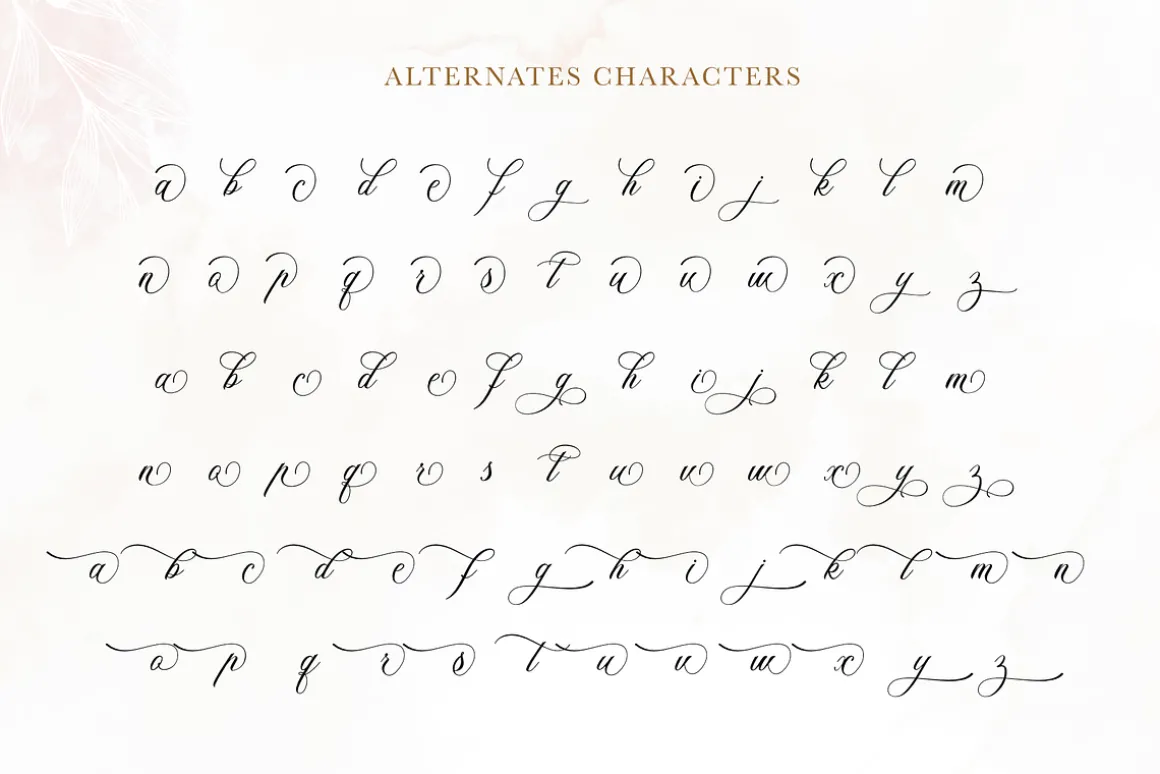 ALTERNATES CHARACTERS
a b c d e f g h i j k l m
n o p q r s t u v w x y z
a b c d e f g h i j k l m
n o p q r s t u v w x y z
a b c d e f g h i j k l m n
o p q r s t u v w x y z